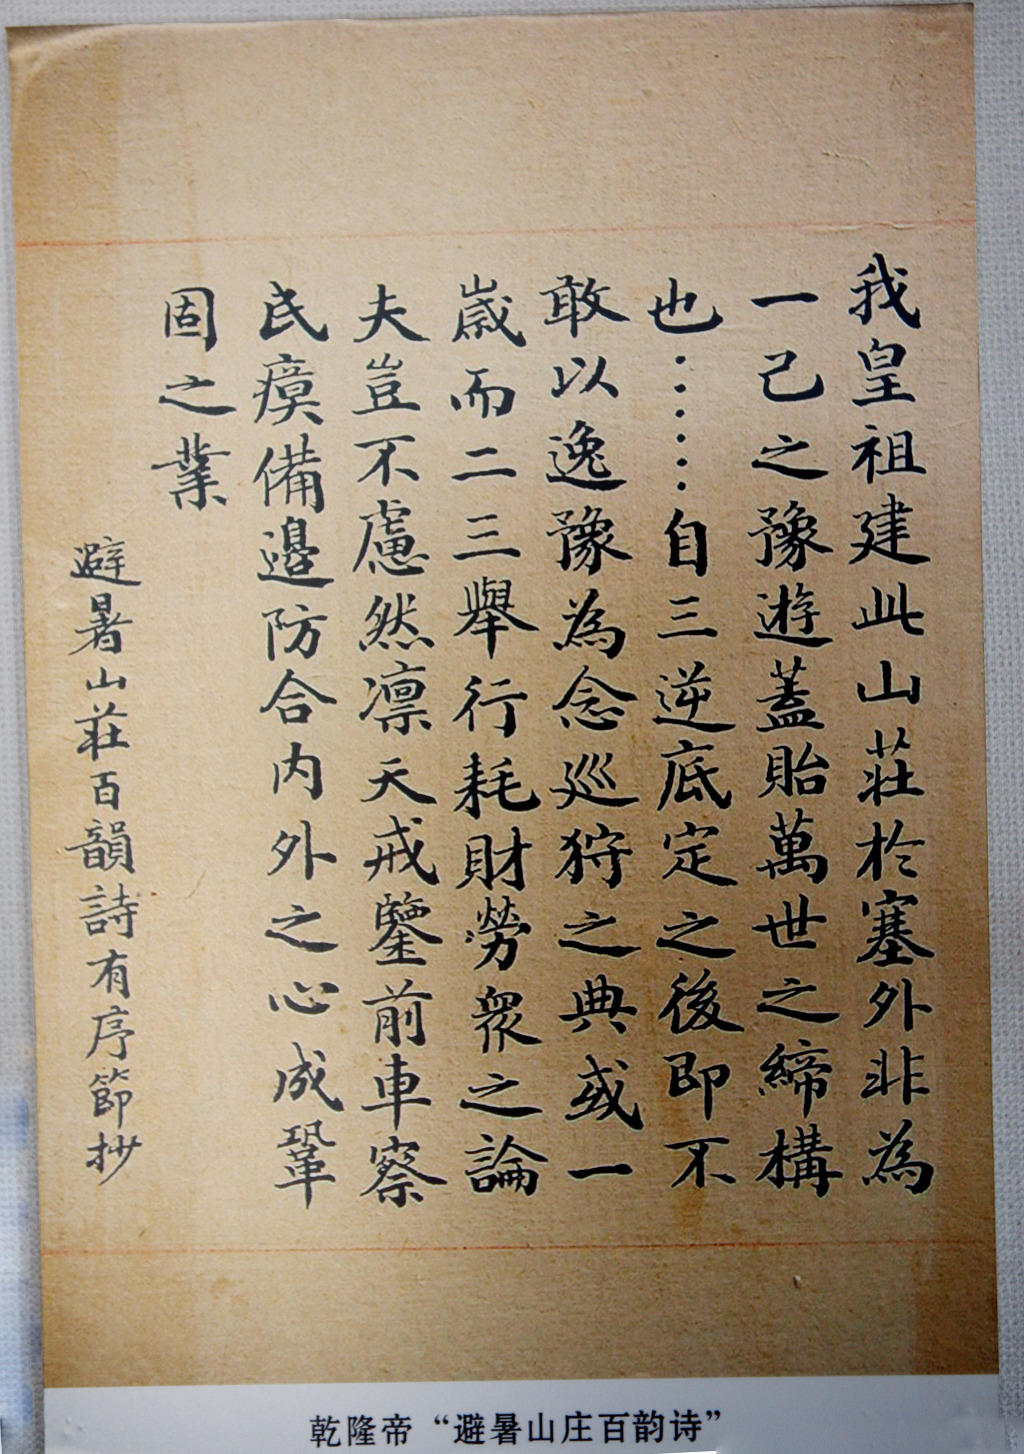 我皇祖建此山莊於塞外非為
一己之豫遊蓋貽萬世之締構
也······自三逆底定之後即不
敢以逸豫為念巡狩之典或一
歲而二三舉行耗財勞衆之論
夫豈不慮然凛天戒鑒前車察
民瘼備邊防合内外之心成鞏
固之業
避暑山莊百韻詩有序節抄
乾隆帝“避暑山庄百韵诗”